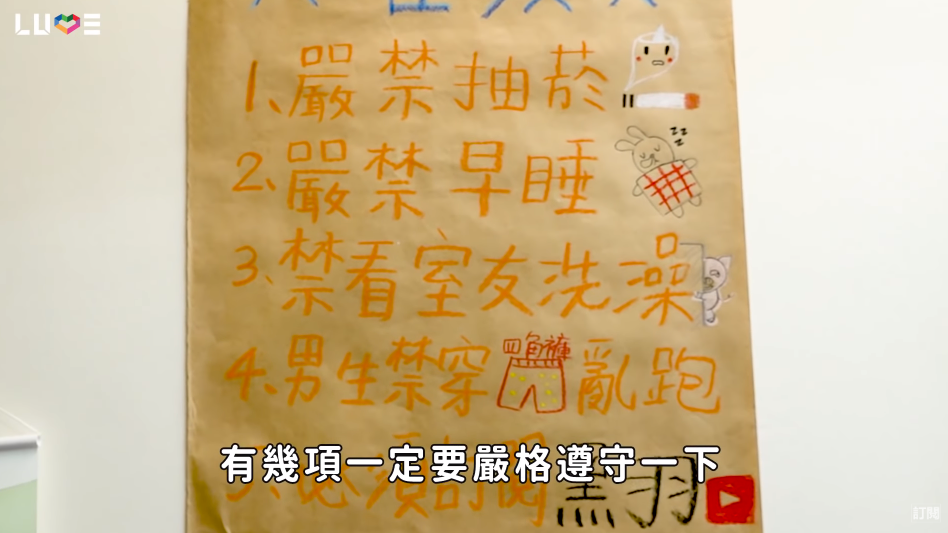 LOVE
1、嚴禁抽菸
2、嚴禁早睡 zzz
3、禁看室友洗澡
4、男生禁穿四角褲亂跑
5、必須訂閱黑羽
有幾項一定要嚴格遵守一下
訂閱